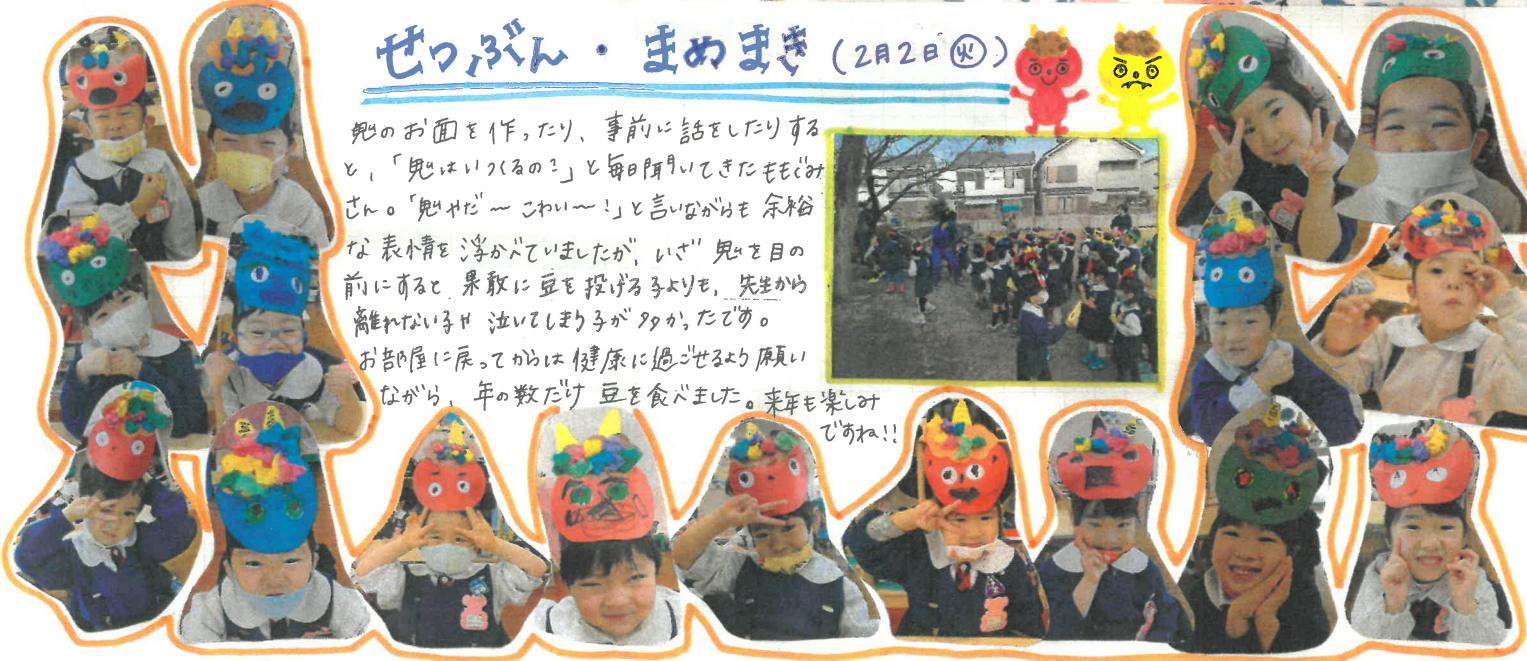 せつぶん・まめまき(2月2日㊋)
鬼のお面を作ったり、事前に話をしたりする
と、「鬼はいつくるの?」と毎日聞いてきたももぐみ
さん。「鬼やだ〜こわい〜!」と言いながらも余裕
な表情を浮かべていましたが、いざ鬼を目の
前にすると果敢に豆を投げる子よりも、先生から
離れない子や泣いてしまう子が多かったです。
お部屋に戻ってからは健康に過ごせるよう願い
ながら、年の数だけ豆を食べました。来年も楽しみ
ですね!!